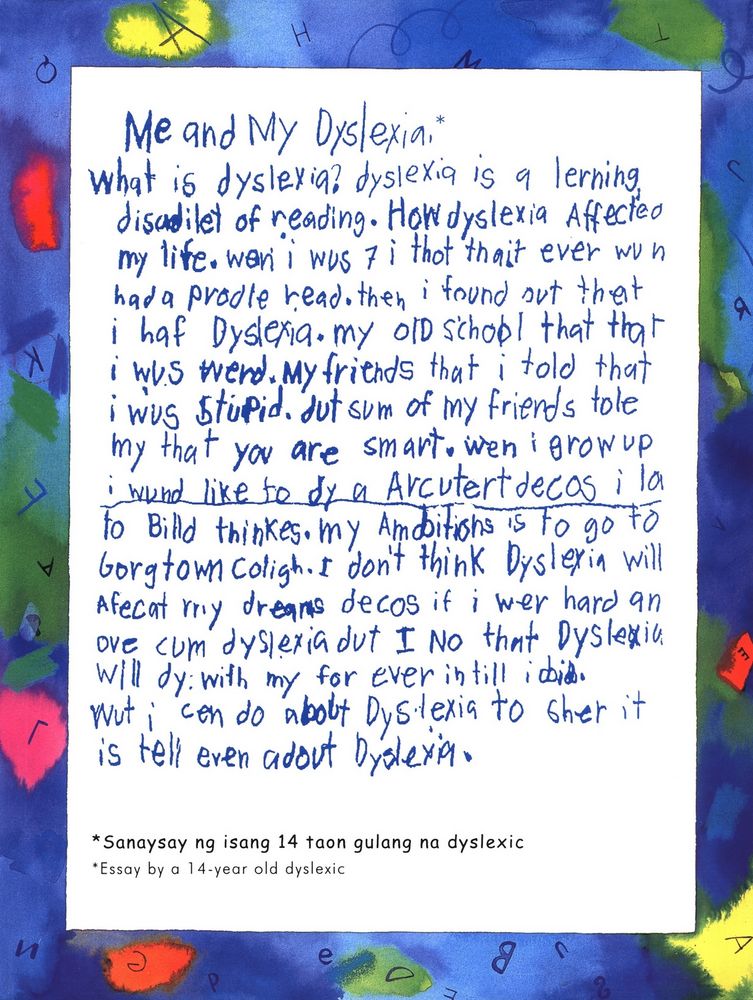 Me and My Dyslexia.*
What is dyslexia? dyslexia is a lerning
disadilet of reading. How dyslexia Affected
my life. wen i wus 7 i thot thait ever wun
had a prodle read. then i found out that
i haf Dyslexia. my old school that that
i wus werd. My friends that i told that
i wus stupid. dut sum of my friends tole
my that you are smart. wen i grow up
i wund like to dy a Arcutert decos i la
to Billd thinkes. my Amditiohs is to go to
Gorgtown Coligh. I don't think Dyslexia will
Afecat my dreams decos if i wer hard an
ove cum dyslexia dut I No that Dyslexia
Will dy: with my for ever in till i did.
Wut i cen do about Dyslexia to sher it
is tell even adout Dyslexia.
*Sanaysay ng isang 14 taon gulang na dyslexic
*Essay by a 14-year old dyslexic